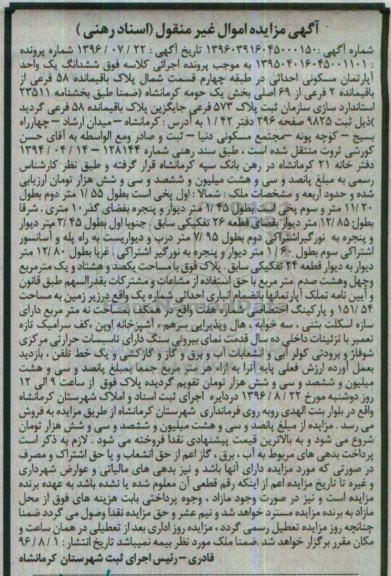 آگهی مزایده اموال غیر منقول (اسناد رهنی)
شماره آگهی: ۱۳۹۶۰۳۹۱۶۰۴۵۰۰۰۱۵۰ تاریخ آگهی: ۱۳۹۶/۰۷/۲۲ شماره پرونده
۱۳۹۵۰۴۰۱۶۰۴۵۰۰۱۱۰۱: به موجب پرونده اجرائی کلاسه فوق ششدانگ یک واحد
آپارتمان مسکونی احداثی در طبقه چهارم قسمت شمال پلاک باقیمانده ۵۸ فرعی از
باقیمانده ۲ فرعی از ۶۹ اصلی بخش یک حومه کرمانشاه (ضمنا طبق بخشنامه ۲۳۵۱۱
استاندارد سازی سازمان ثبت پلاک ۵۷۳ فرعی جایگزین پلاک باقیمانده ۵۸ فرعی گردید
)ذیل ثبت ۹۸۲۵ صفحه ۲۹۶ دفتر ۱/۴۲ به آدرس: کرمانشاه – میدان ارشاد – چهارراه
بسیج – کوچه پونه – مجتمع مسکونی دنیا – ثبت و صادر ومع الواسطه به آقای حسن
کورشی ثروت منتقل شده است، طبق سند رهنی شماره ۱۲۸۱۴۴ – ۱۳۹۴/۰۴/۱۴
دفتر خانه ۲۱ کرمانشاه در رهن بانک سپه کرمانشاه قرار گرفته و طبق نظر کارشناس
رسمی به مبلغ پانصد و سی و هشت میلیون و ششصد و سی و شش هزار تومان ارزیابی
شده و حدود اربعه و مشخصات ملک: شمالا: اول پخی است بطول ۱/۵۵ متر دوم بطول
۱۱/۲۰ متر و سوم پخی است بطول ۷/۴۵ متر دیوار و پنجره بفضای گذر ۱۰ متری. شرقا
بطول: ۱۲/۸۵ متر دیوار بفضای قطعه ۲۶ تفکیکی سابق. جنوبا اول بطول ۳/۴۵ متر دیوار
و پنجره به نورگیراشتراکی دوم بطول ۷/۹۵ متر درب و دیواریست به راه پله و آسانسور
اشتراکی سوم بطول ۱/۶۰ متر دیوار و پنجره به نورگیر اشتراکی. غربا بطول ۱۲/۸۰ متر
دیوار به دیوار قطعه ۲۴ تفکیکی سابق. پلاک فوق با مساحت یکصد و هشتاد و یک مترمربع
وچهل وهشت صدم متر مربع با حق استفاده از مشاعات و مشترکات بقدرالسهم طبق قانون
و آیین نامه تملک آپارتمانها بانضمام انباری احداثی شماره یک واقع درزیر زمین به مساحت
۱۵۱/۵۴ و پارکینگ اختصاصی شماره هفت واقع در همکف بمساحت نه متر مربع دارای
سازه اسکلت بتنی، سه خوابه، هال وپذیرایی سرهم، آشپزخانه اوپن، کف سرامیک تازه
تعمیر با تزئینات داخلی ده سال قدمت نمای بیرونی سنگ دارای تاسیسات حرارتی مرکزی
شوفاژ و برودتی کولر آبی و انشعابات آب و برق و گاز و گازکشی و یک خط تلفن، بازدید
بعمل آورده ارزش فعلی پایه آنرا به ازاء هر متر مربع جمعا بمبلغ پانصد و سی و هشت
میلیون و ششصد و سی و شش هزار تومان تقویم گردیده پلاک فوق از ساعت ۹ الی ۱۲
روز دوشنبه مورخ ۱۳۹۶/۸/۲۲ دردایره اجرای ثبت اسناد و املاک شهرستان کرمانشاه
واقع در بلوار بنت الهدی روبه روی فرمانداری شهرستان کرمانشاه از طریق مزایده به فروش
می رسد. مزایده از مبلغ پانصد و سی و هشت میلیون و ششصد و سی و شش هزار تومان
شروع می شود و به بالاترین قیمت پیشنهادی نقدا فروخته می شود. لازم به ذکر است
پرداخت بدهی های مربوط به آب، برق، گاز اعم از حق انشعاب و یا حق اشتراک و مصرف
در صورتی که مورد مزایده دارای آنها باشد و نیز بدهی های مالیاتی و عوارض شهرداری
و غیره تا تاریخ مزایده اعم از اینکه رقم قطعی آن معلوم شده یا نشده باشد به عهده برنده
مزایده است و نیز در صورت وجود مازاد، وجوه پرداختی بابت هزینه های فوق از محل
مازاد به برنده مزایده مسترد خواهد شد و نیم عشر و حق مزایده نقدا وصول می گردد ضمنا
چنانچه روز مزایده تعطیل رسمی گردد، مزایده روز اداری بعد از تعطیلی در همان ساعت و
مکان مقرر برگزار خواهد شد. ضمنا ملک مورد نظر بیمه نمیباشد تاریخ انتشار: ۹۶/۸/۱
قادری – رئیس اجرای ثبت شهرستان کرمانشاه